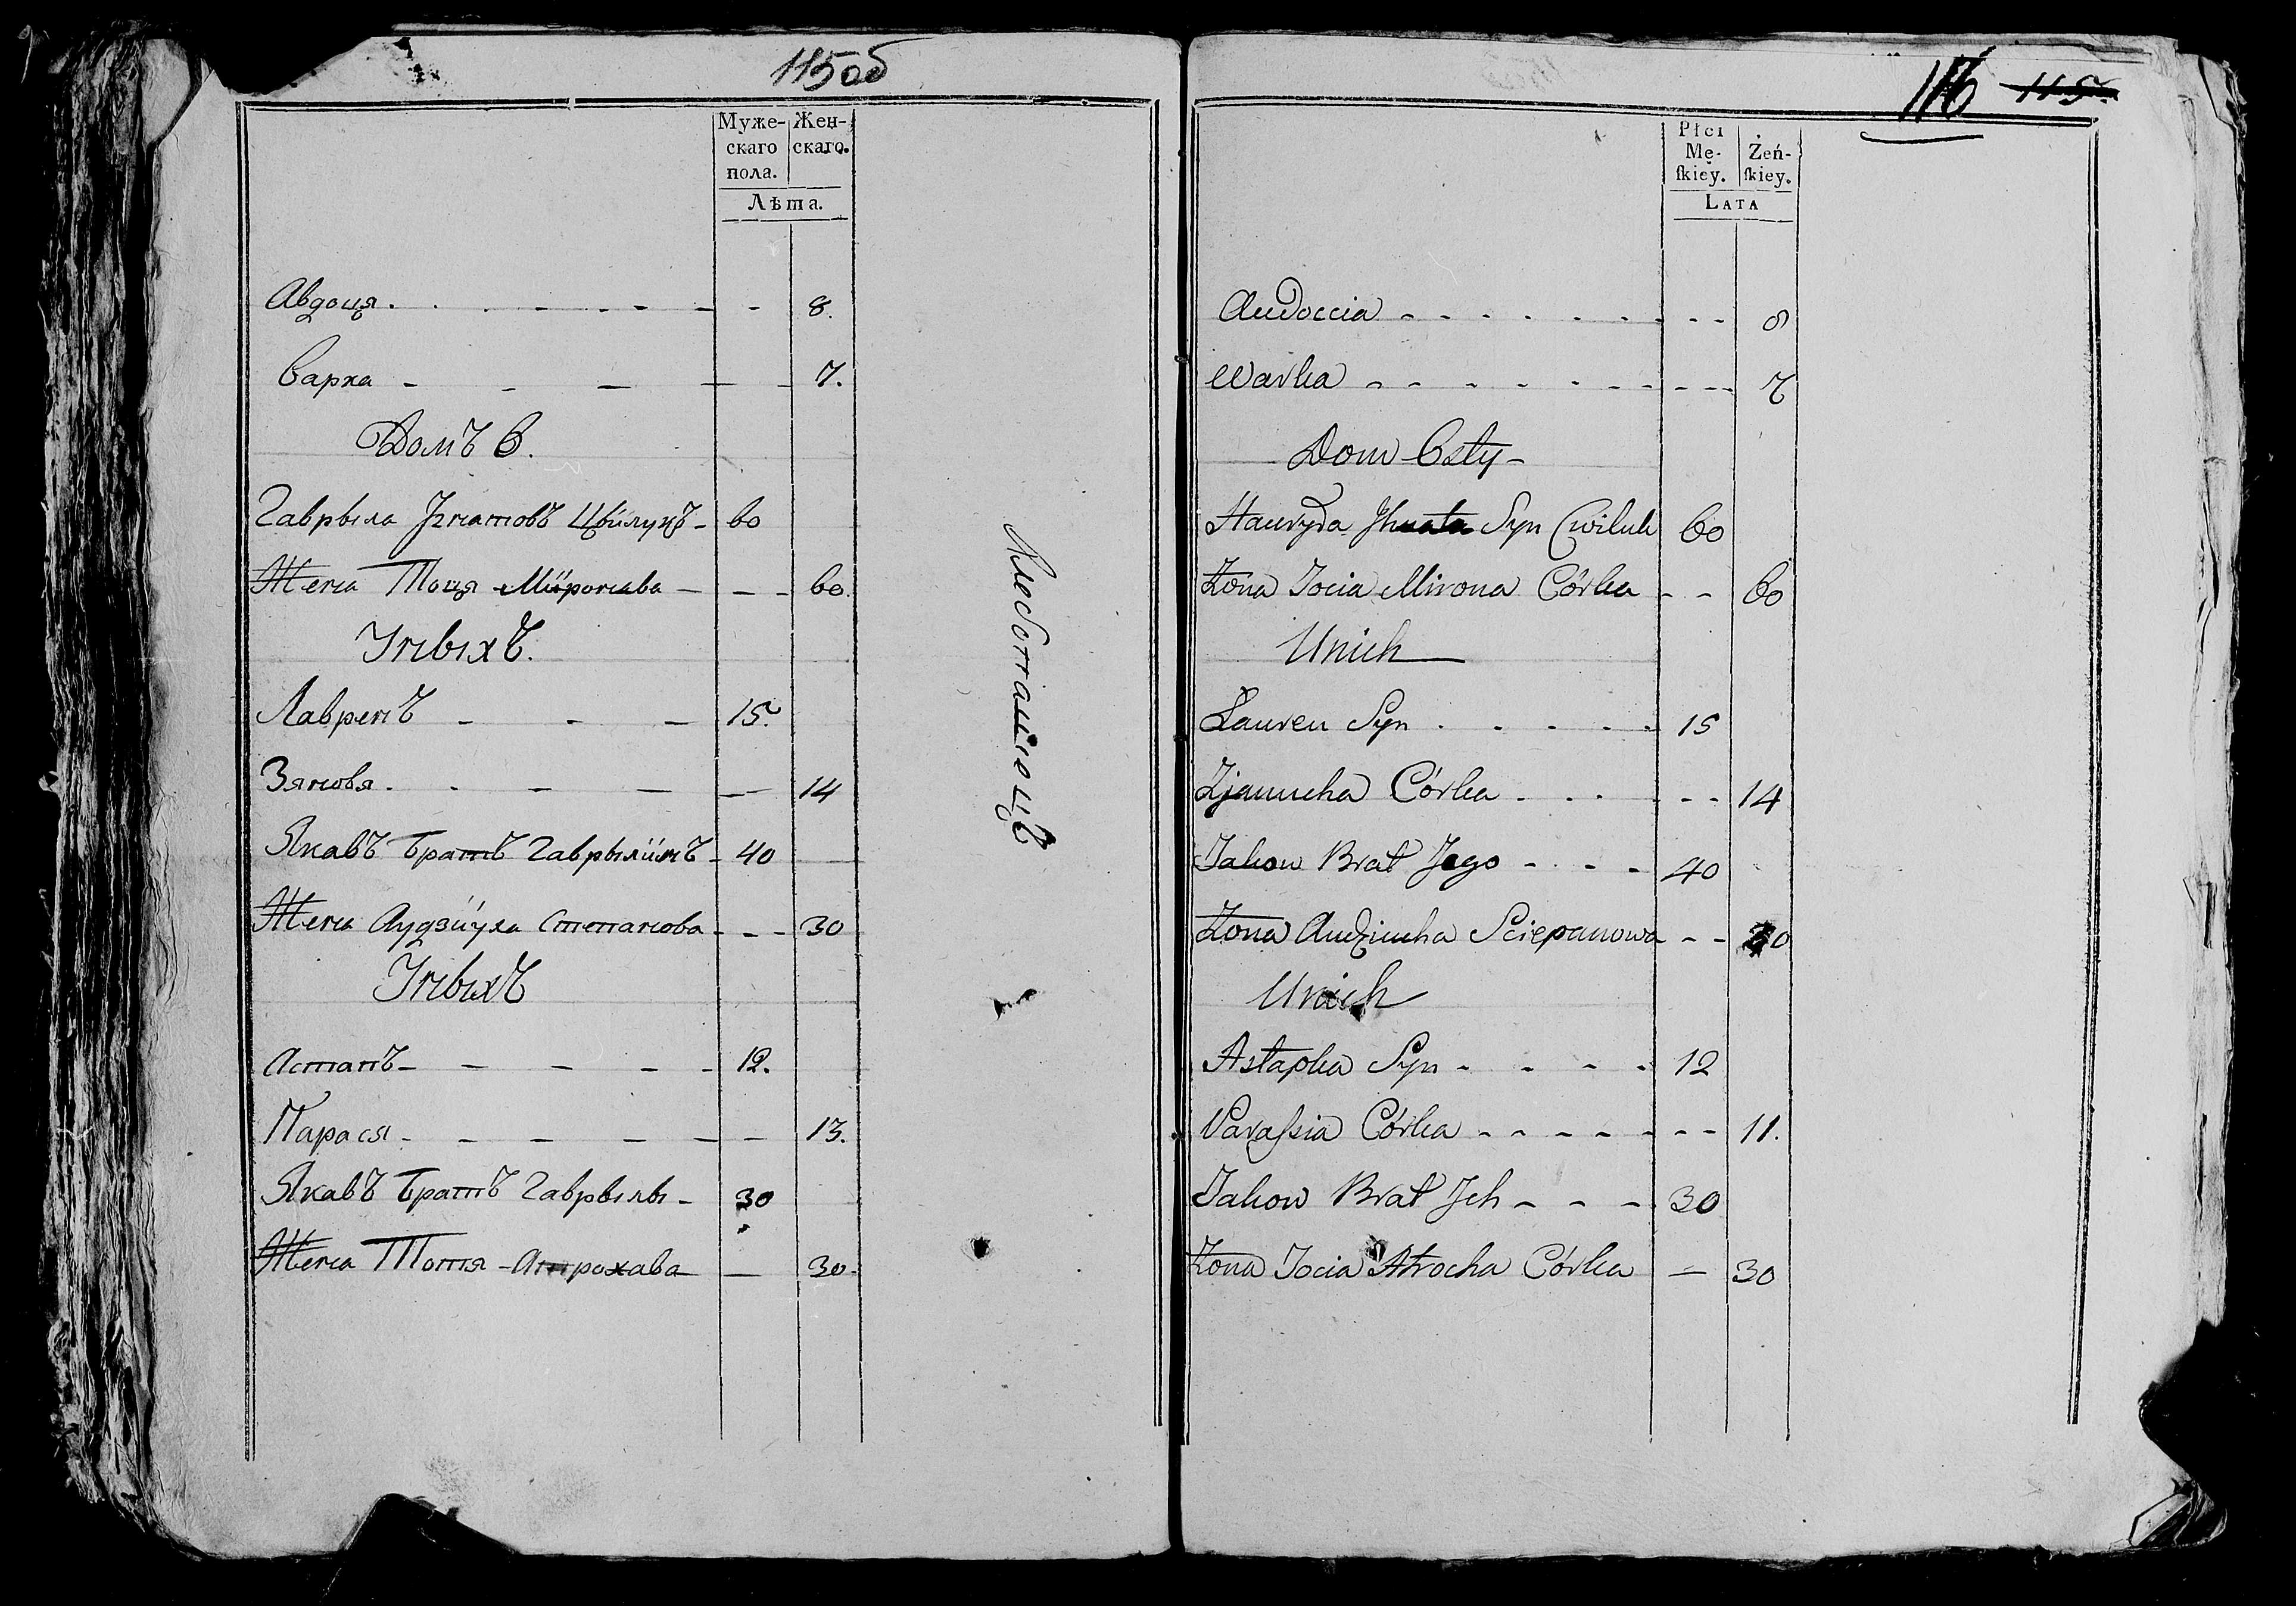 115 об
Муже-
скаго
пола.
Жен-
скаго.
Лѣта.
Авдоця. 8.
Варка 7.
Домъ 6.
Гаврыла Игнатовъ Цвилукъ 60
Жена Тоця Миронава 60.
У нихъ.
Лавренъ 15.
Зяновя. 14
Якавъ братъ Гаврылинъ 40
Жена Аудзіуха Степанова 30
У ныхъ
Астапъ 12.
Парася 13.
Якавъ братъ Гаврылы 30
Жена Тотя Атрохава 30.
116 115.
Płci
Mę-
ſkiey.
Żeń-
ſkiey.
LATA
Audoccia 8
Warka 7
Dom 6sty
Hauryła Jhnata Syn Cwiluk 60
Żona Tocia Mirona Córka 60
U nich
Łauren Syn 15
Córka 14
Jakow Brat Jego 40
Żona Audziucha Sciepanowa 30
U nich
Astapka Syn 12
Paraſsia Córka 11.
Jakow Brat Jch 30
Żona Tocia Atrocha Córka 30